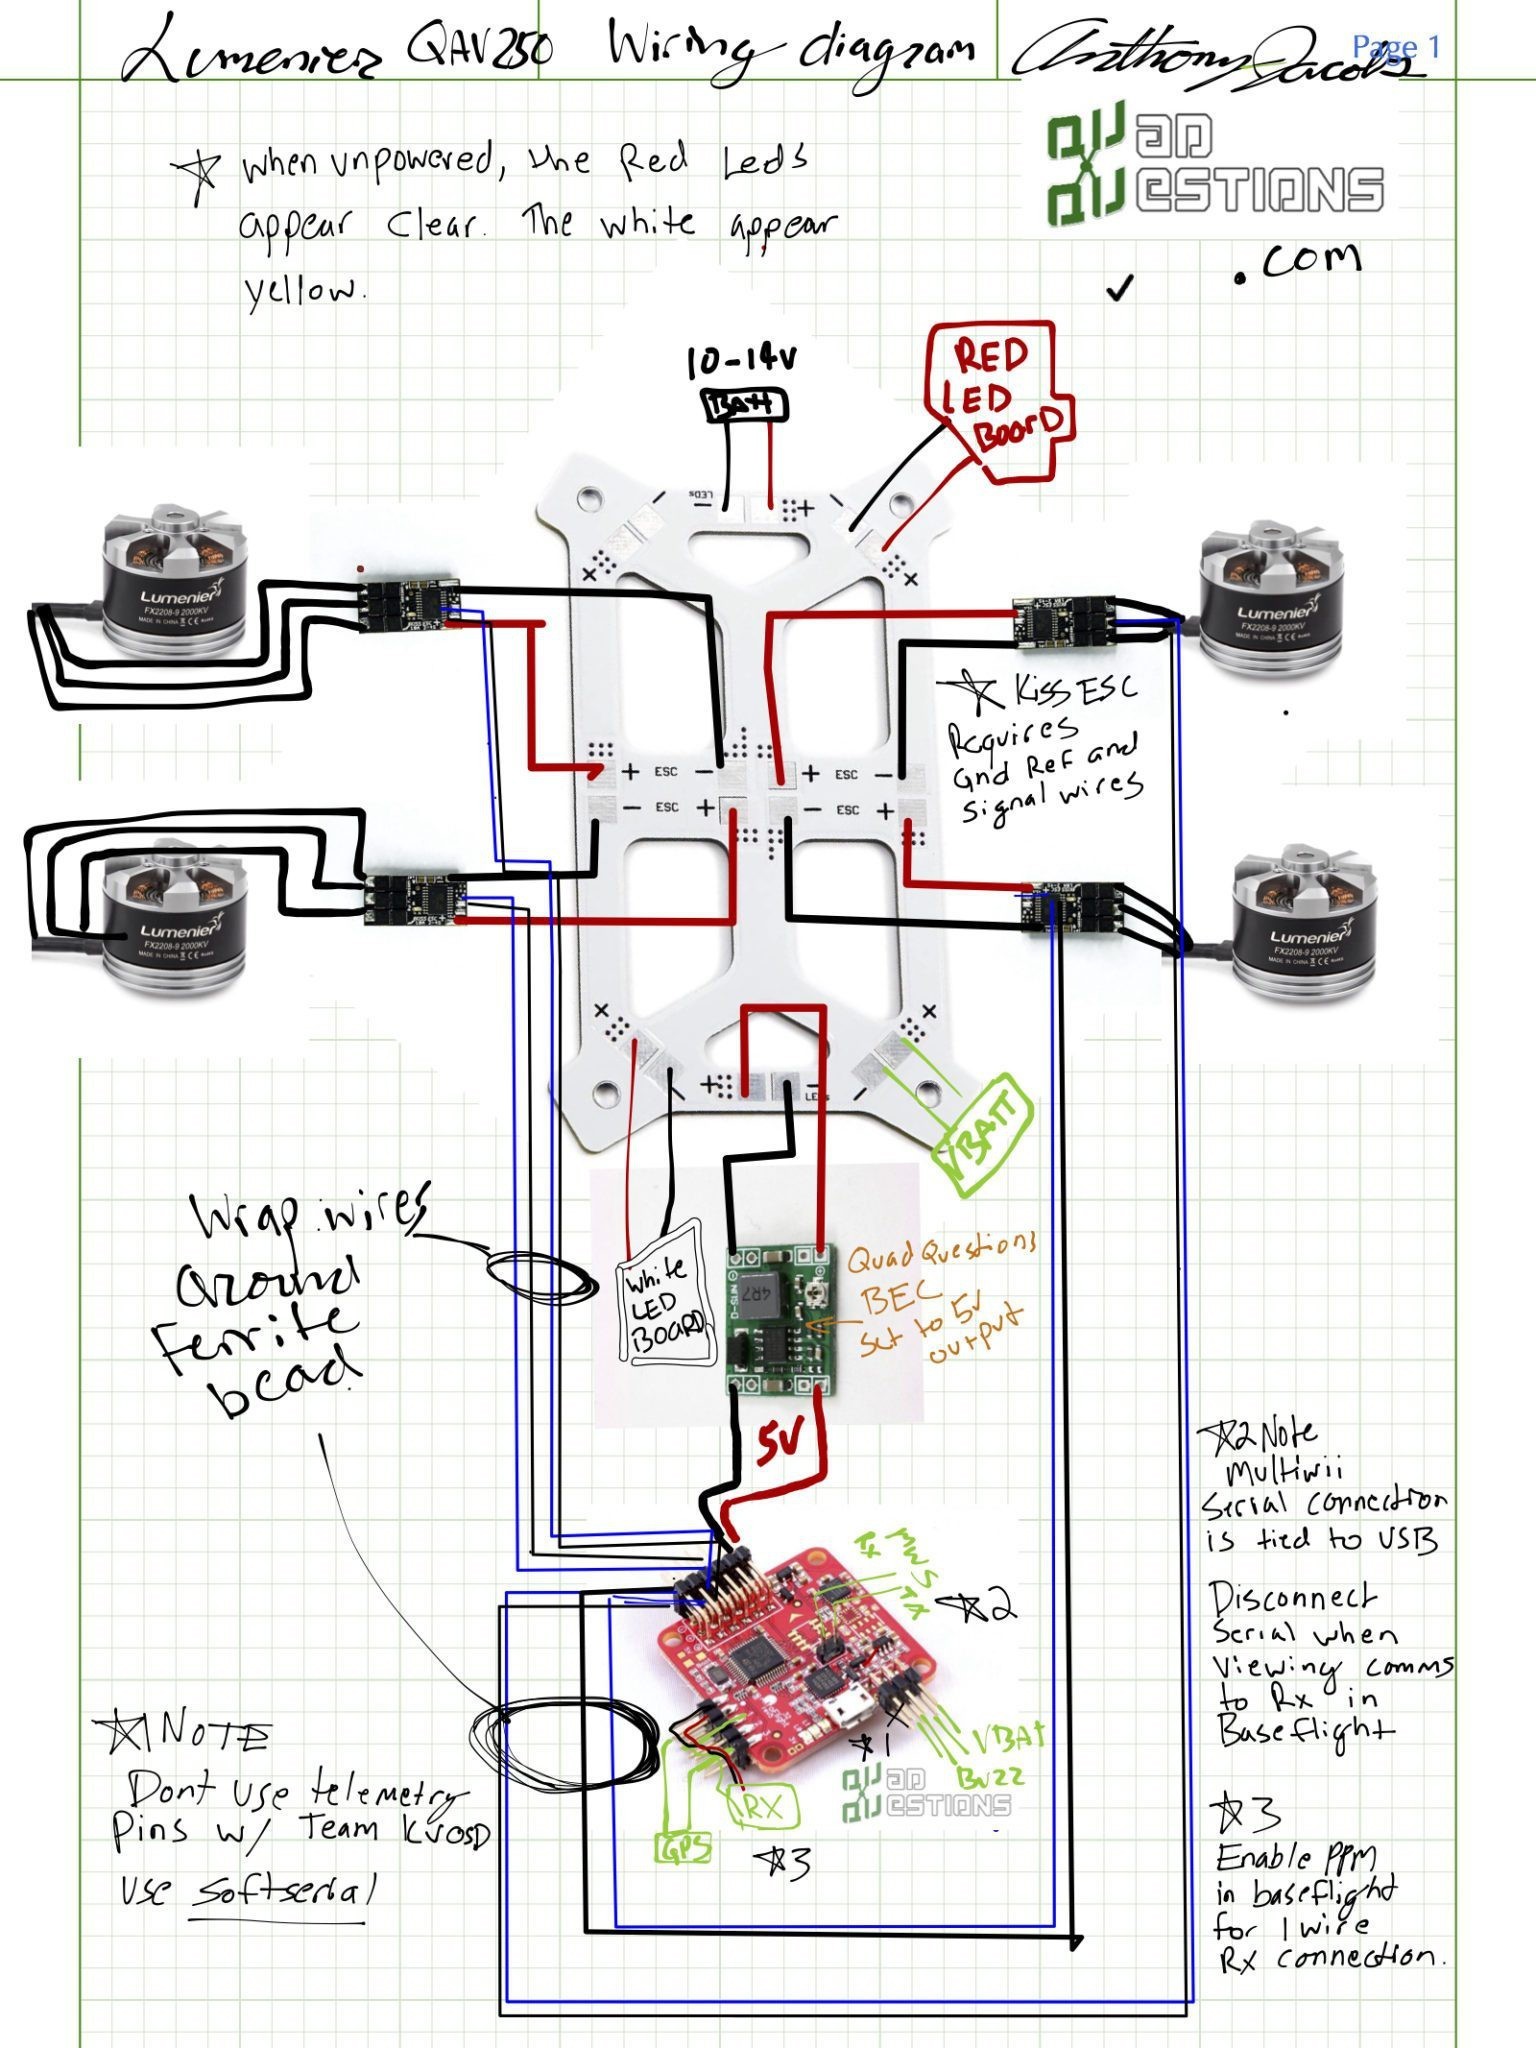 Lumenier QAV250 Wiring diagram Anthony Jacobs
Page 1
QUAD
QUESTIONS
.com
☆ when unpowered, the Red Leds
appear clear. The white appear
yellow.
10-14V
Batt
RED
LED
BoarD
LEDs
−
+
LUMENIER
FX2208-9 2000KV
MADE IN CHINA
LUMENIER
FX2208-9 2000KV
MADE IN CHINA
☆ Kiss ESC
Requires
Gnd Ref and
signal wires
+ ESC −
+ ESC −
− ESC +
− ESC +
LUMENIER
FX2208-9 2000KV
MADE IN CHINA
LUMENIER
FX2208-9 2000KV
MADE IN CHINA
+
−
LEDs
VBATT
Wrap wires
Around
Ferrite
bead
White
LED
BOARD
4R7
QuadQuestions
BEC
set to 5v
output
5V
Rx
MWS
TX
☆2
☆2 Note
Multiwii
Serial connection
is tied to USB
Disconnect
Serial when
viewing comms
to Rx in
Baseflight
☆1 NOTE
Dont use telemetry
Pins w/ Team KVOSD
use softserial
☆1
VBAt
Buzz
QUAD
QUESTIONS
RX
GPS
☆3
☆3
Enable PPM
in baseflight
for 1 wire
Rx connection.